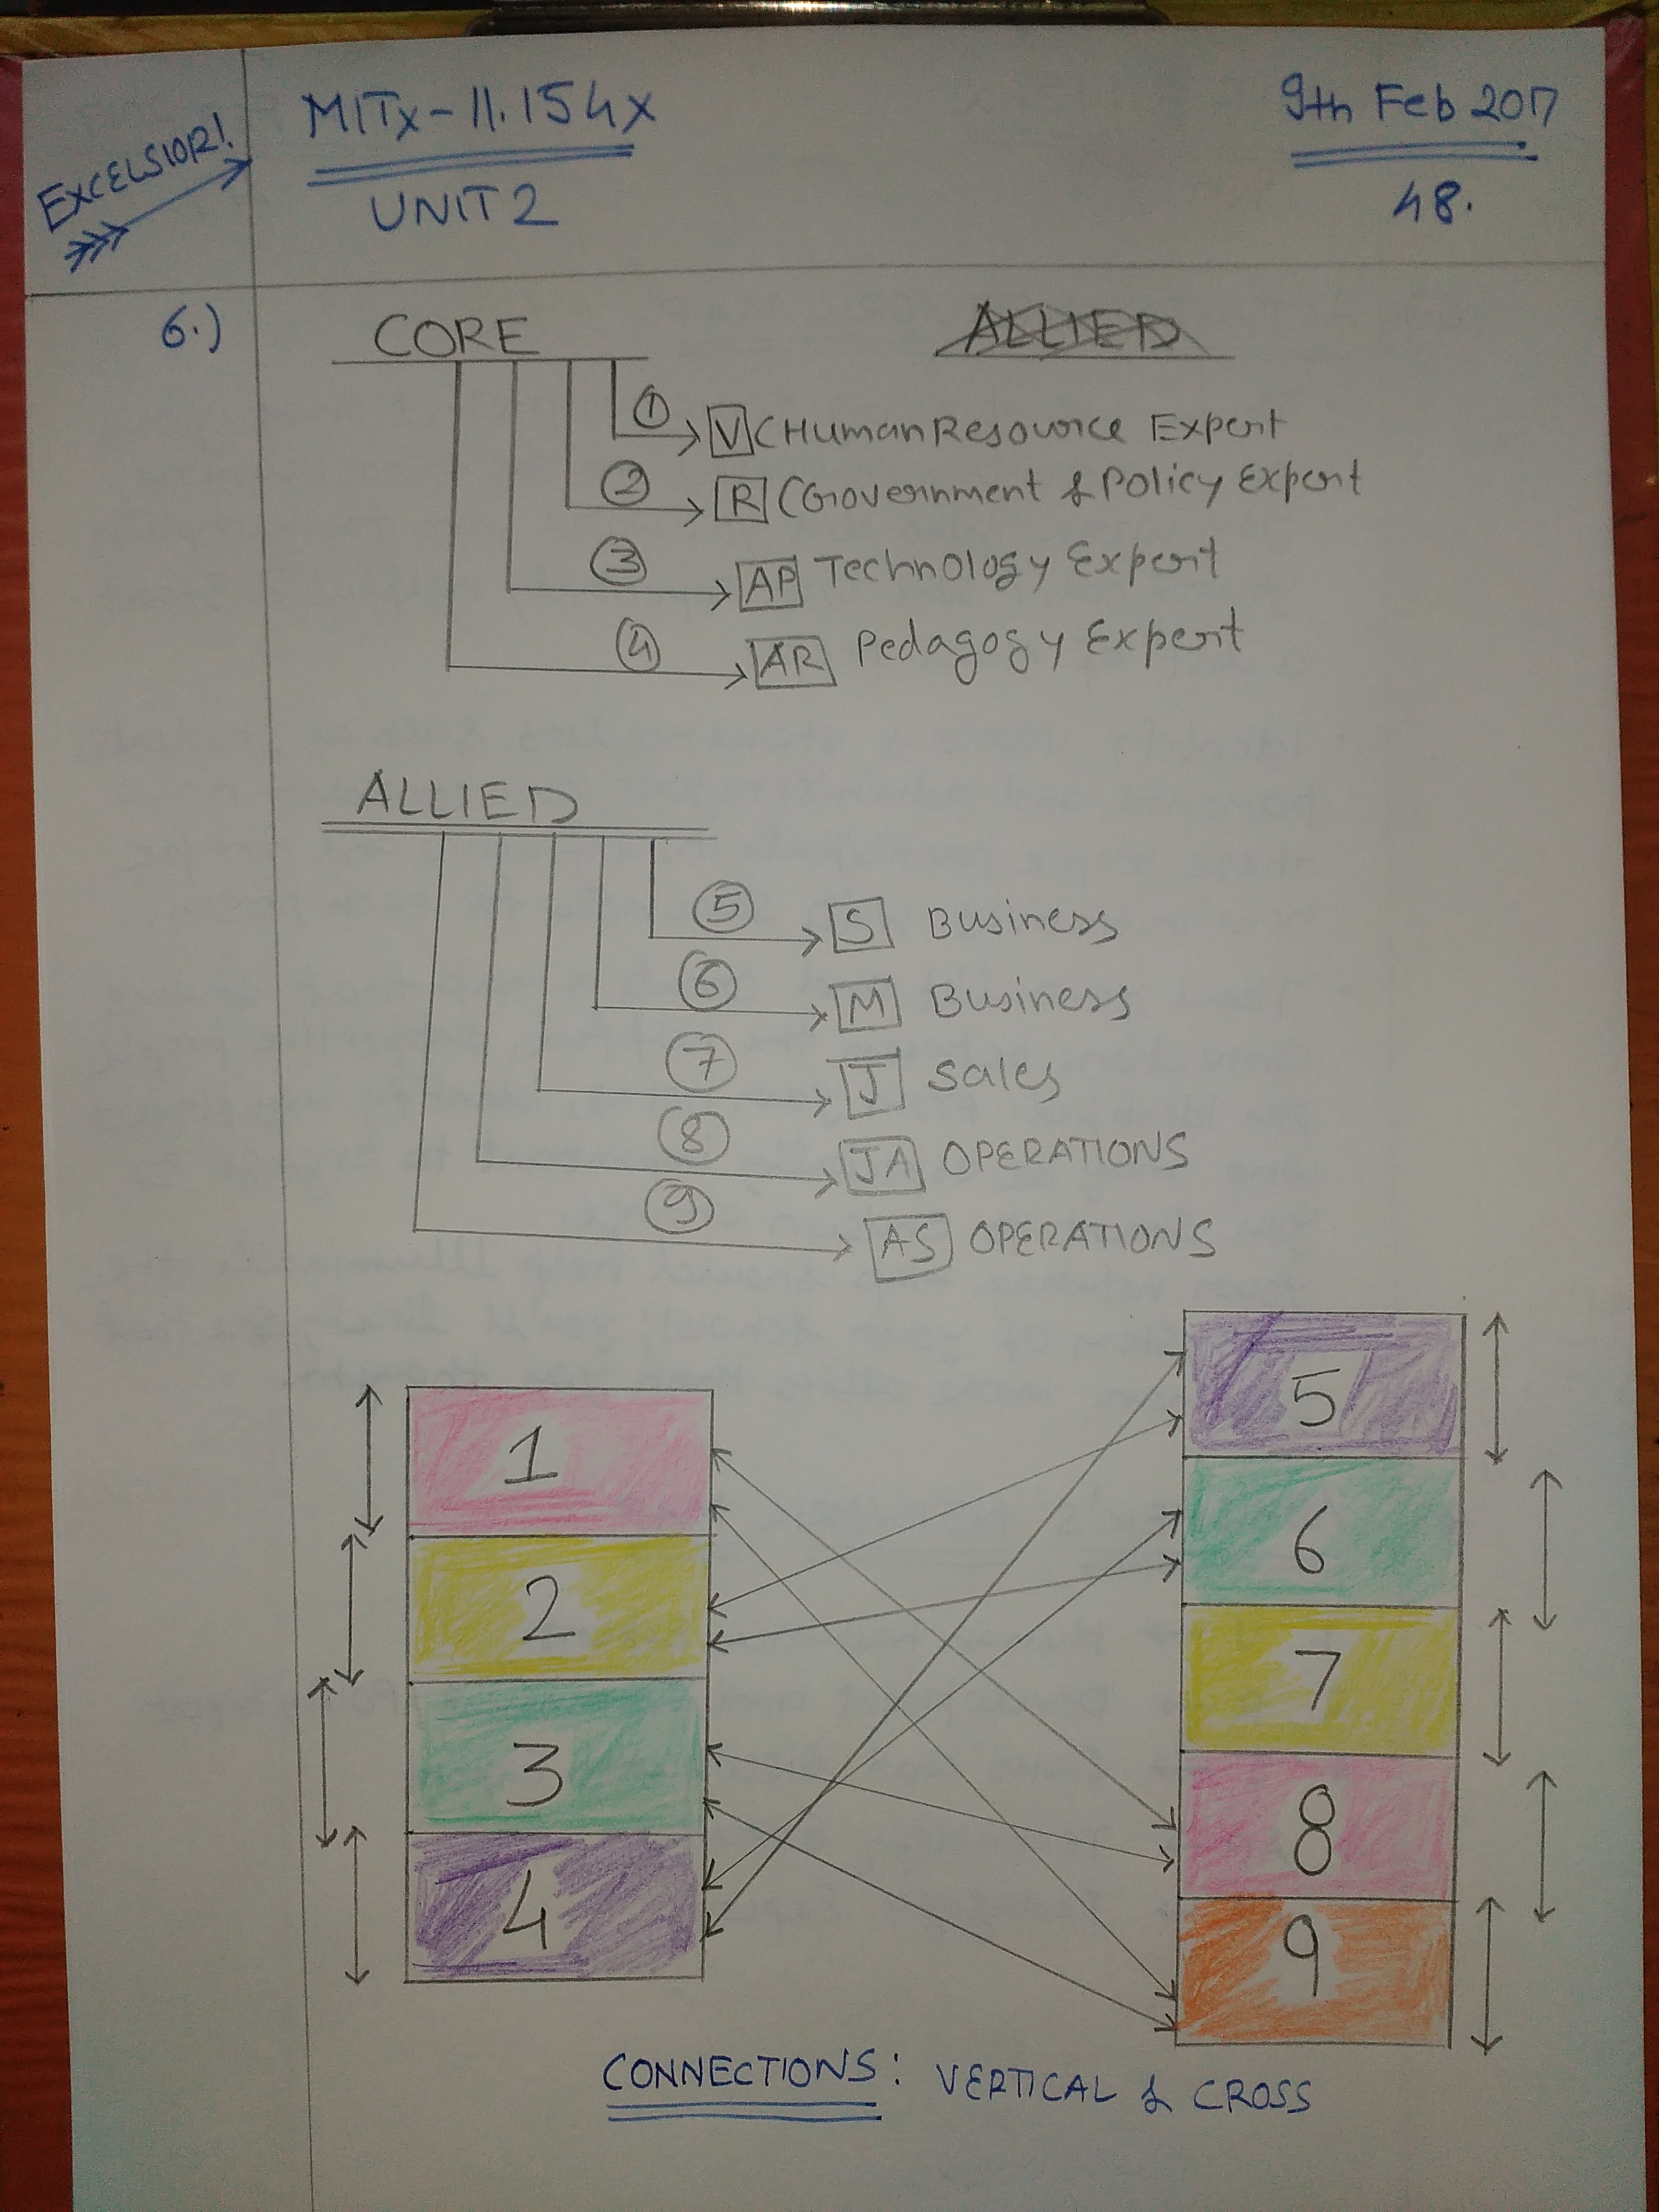 EXCELSIOR!
MITx-11.154x
9th Feb 2017
UNIT 2
48.
6.)
CORE
ALLIED
1 V (Human Resource Expert
2 R (Government & Policy Expert
3 AP Technology Expert
4 AR Pedagogy Expert
ALLIED
5 S Business
6 M Business
7 J Sales
8 JA OPERATIONS
9 AS OPERATIONS
1
2
3
4
5
6
7
8
9
CONNECTIONS: VERTICAL & CROSS